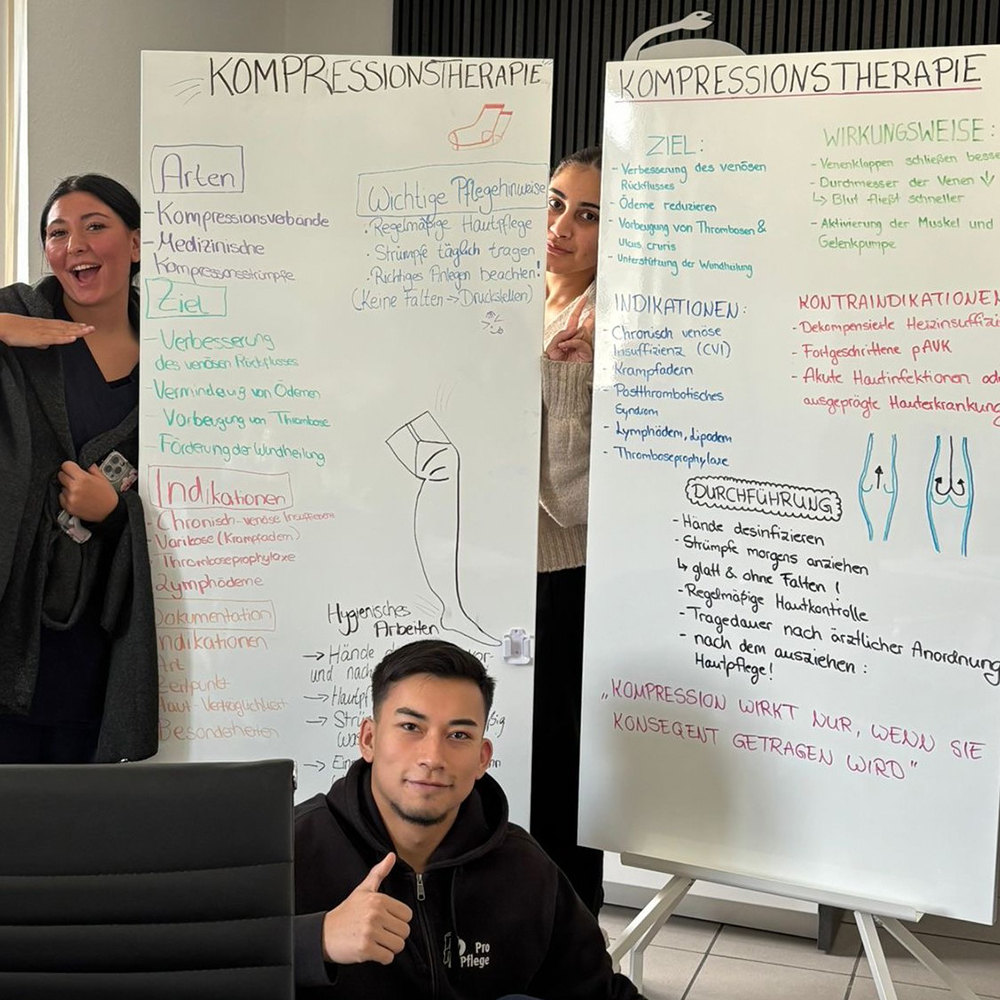 KOMPRESSIONSTHERAPIE
Arten
- Kompressionsverbände
- Medizinische
Kompressionsstrümpfe
Ziel
- Verbesserung
des venösen Rückflusses
- Verminderung von Ödemen
- Vorbeugung von Thrombose
- Förderung der Wundheilung
Indikationen
- Chronisch-venöse Insuffizienz
- Varikose (Krampfadern)
- Thromboseprophylaxe
- Lymphödeme
Dokumentation
Indikationen
Art
Zeitpunkt
Haut-Verträglichkeit
Besonderheiten
Wichtige Pflegehinweise
· Regelmäßige Hautpflege
· Strümpfe täglich tragen
· Richtiges Anlegen beachten!
(Keine Falten -> Druckstellen)
Hygienisches
Arbeiten
→ Hände vor-
und nach
→
→
→
KOMPRESSIONSTHERAPIE
ZIEL:
- Verbesserung des venösen
Rückflusses
- Ödeme reduzieren
- Vorbeugung von Thrombosen &
Ulcus cruris
- Unterstützung der Wundheilung
WIRKUNGSWEISE:
- Venenklappen schließen
- Durchmesser der Venen ↓
↳ Blut fließt schneller
- Aktivierung der Muskel und
Gelenkpumpe
INDIKATIONEN:
- Chronisch venöse
Insuffizienz (CVI)
- Krampfadern
- Postthrombotisches
Syndrom
- Lymphödem, Lipödem
- Thromboseprophylaxe
KONTRAINDIKATIONEN
- Dekompensierte
- Fortgeschrittene pAVK
- Akute Hautinfektionen
ausgeprägte
DURCHFÜHRUNG
- Hände desinfizieren
- Strümpfe morgens anziehen
↳ glatt & ohne Falten !
- Regelmäßige Hautkontrolle
- Tragedauer nach ärztlicher Anordnung
- nach dem ausziehen :
Hautpflege!
„KOMPRESSION WIRKT NUR, WENN SIE
KONSEQENT GETRAGEN WIRD"
Pro
Pflege